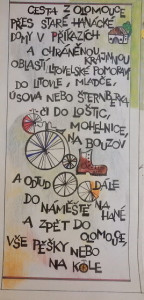 CESTA Z OLOMOUCE
PŘES STARÉ HANÁCKÉ
DOMY V PŘÍKAZÍCH
A CHRÁNĚNOU KRAJINNOU
OBLASTÍ LITOVELSKÉ POMORAVÍ
DO LITOVLE, MLADČE,
ÚSOVA NEBO ŠTERNBERKA
ČI DO LOŠTIC,
MOHELNICE,
NA BOUZOV
A ODTUD DÁLE
DO
NÁMĚŠTĚ NA
HANÉ
A ZPĚT DO
OLOMOUCE,
VŠE PĚŠKY NEBO
NA KOLE